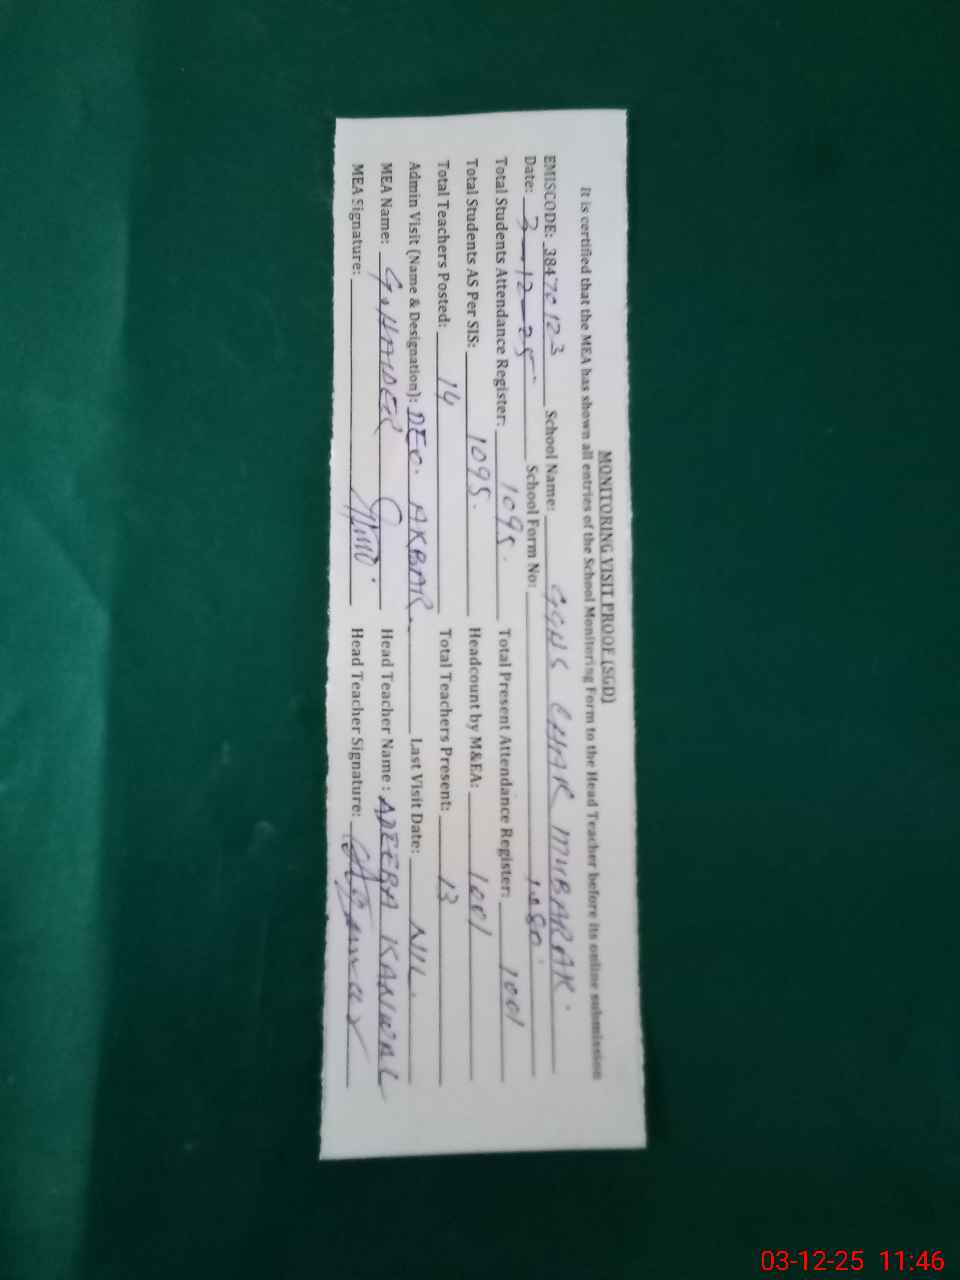 MONITORING VISIT PROOF (SGD)
It is certified that the MEA has shown all entries of the School Monitoring Form to the Head Teacher before its online submission
EMISCODE: 38470123 School Name: GGHS CHAK MUBARAK.
Date: 3-12-25 School Form No: 1080
Total Students Attendance Register: 1095. Total Present Attendance Register: 1001
Total Students AS Per SIS: 1095. Headcount by M&EA: 1001
Total Teachers Posted: 14 Total Teachers Present: 13
Admin Visit (Name & Designation): DEO. AKBAR. Last Visit Date: NIL.
MEA Name: G. HAIDER Head Teacher Name: KANWAL
MEA Signature: Head Teacher Signature:
03-12-25 11:46